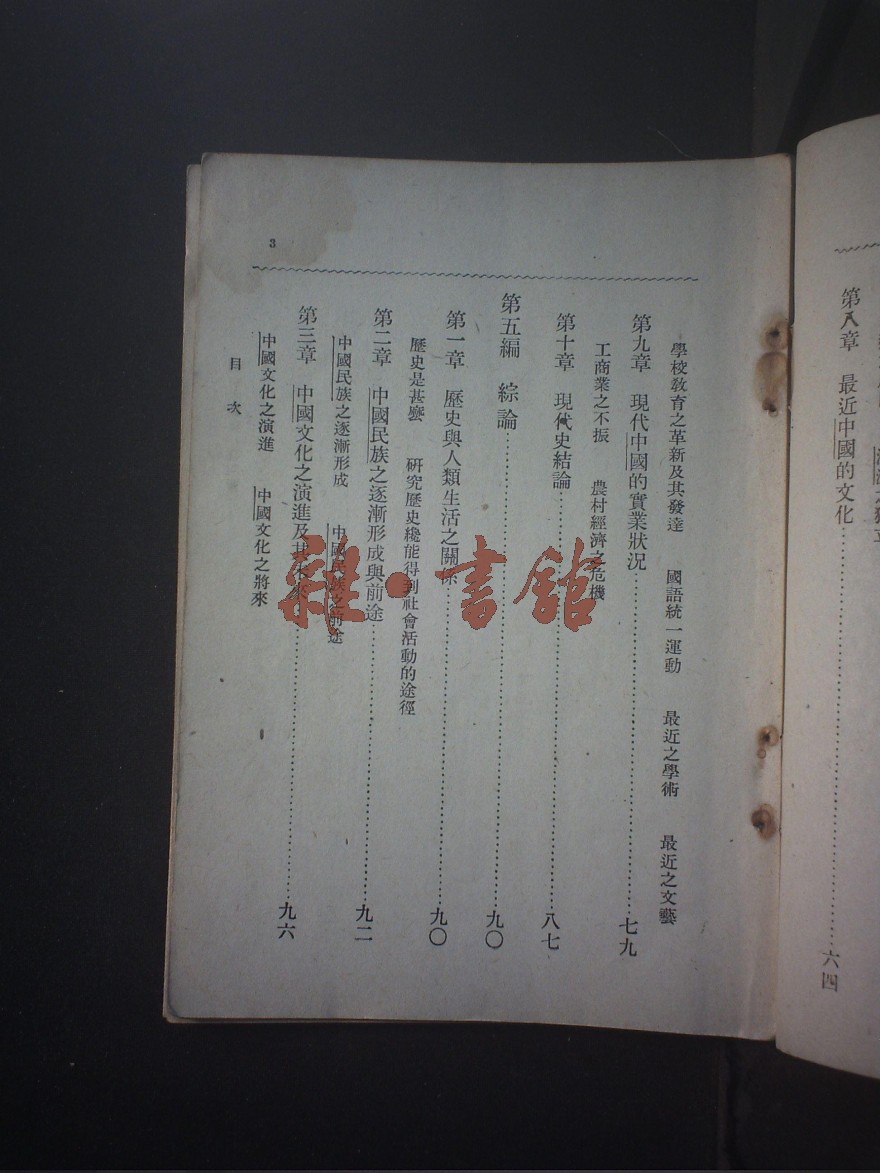 第八章　最近中國的文化……………六四
學校教育之革新及其發達　國語統一運動　最近之學術　最近之文藝
第九章　現代中國的實業狀況……………七九
工商業之不振　農村經濟之危機
第十章　現代史結論……………八七
第五編　綜論……………九〇
第一章　歷史與人類生活之關係……………九〇
歷史是甚麼　研究歷史纔能得到社會活動的途徑
第二章　中國民族之逐漸形成與前途……………九二
中國民族之逐漸形成　中國民族之前途
第三章　中國文化之演進及其未來……………九六
中國文化之演進　中國文化之將來
目次
3
雜·書館